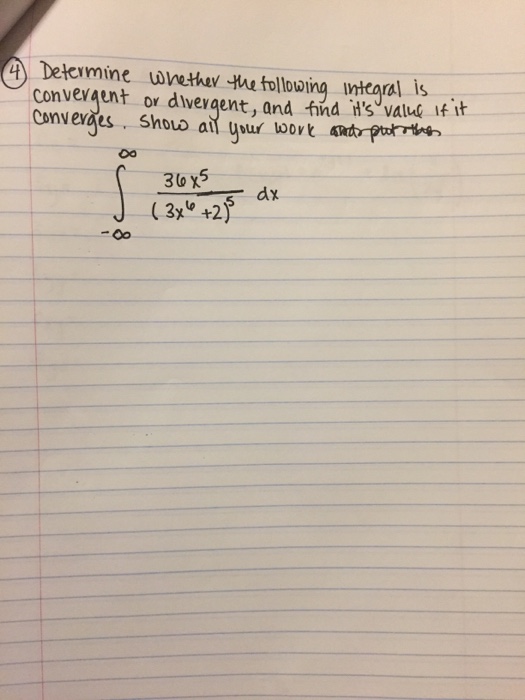 ④ Determine whether the following integral is
convergent or divergent, and find it's value if it
converges. Show all your work
∞
∫ 36x⁵ / (3x⁶ +2)⁵ dx
-∞